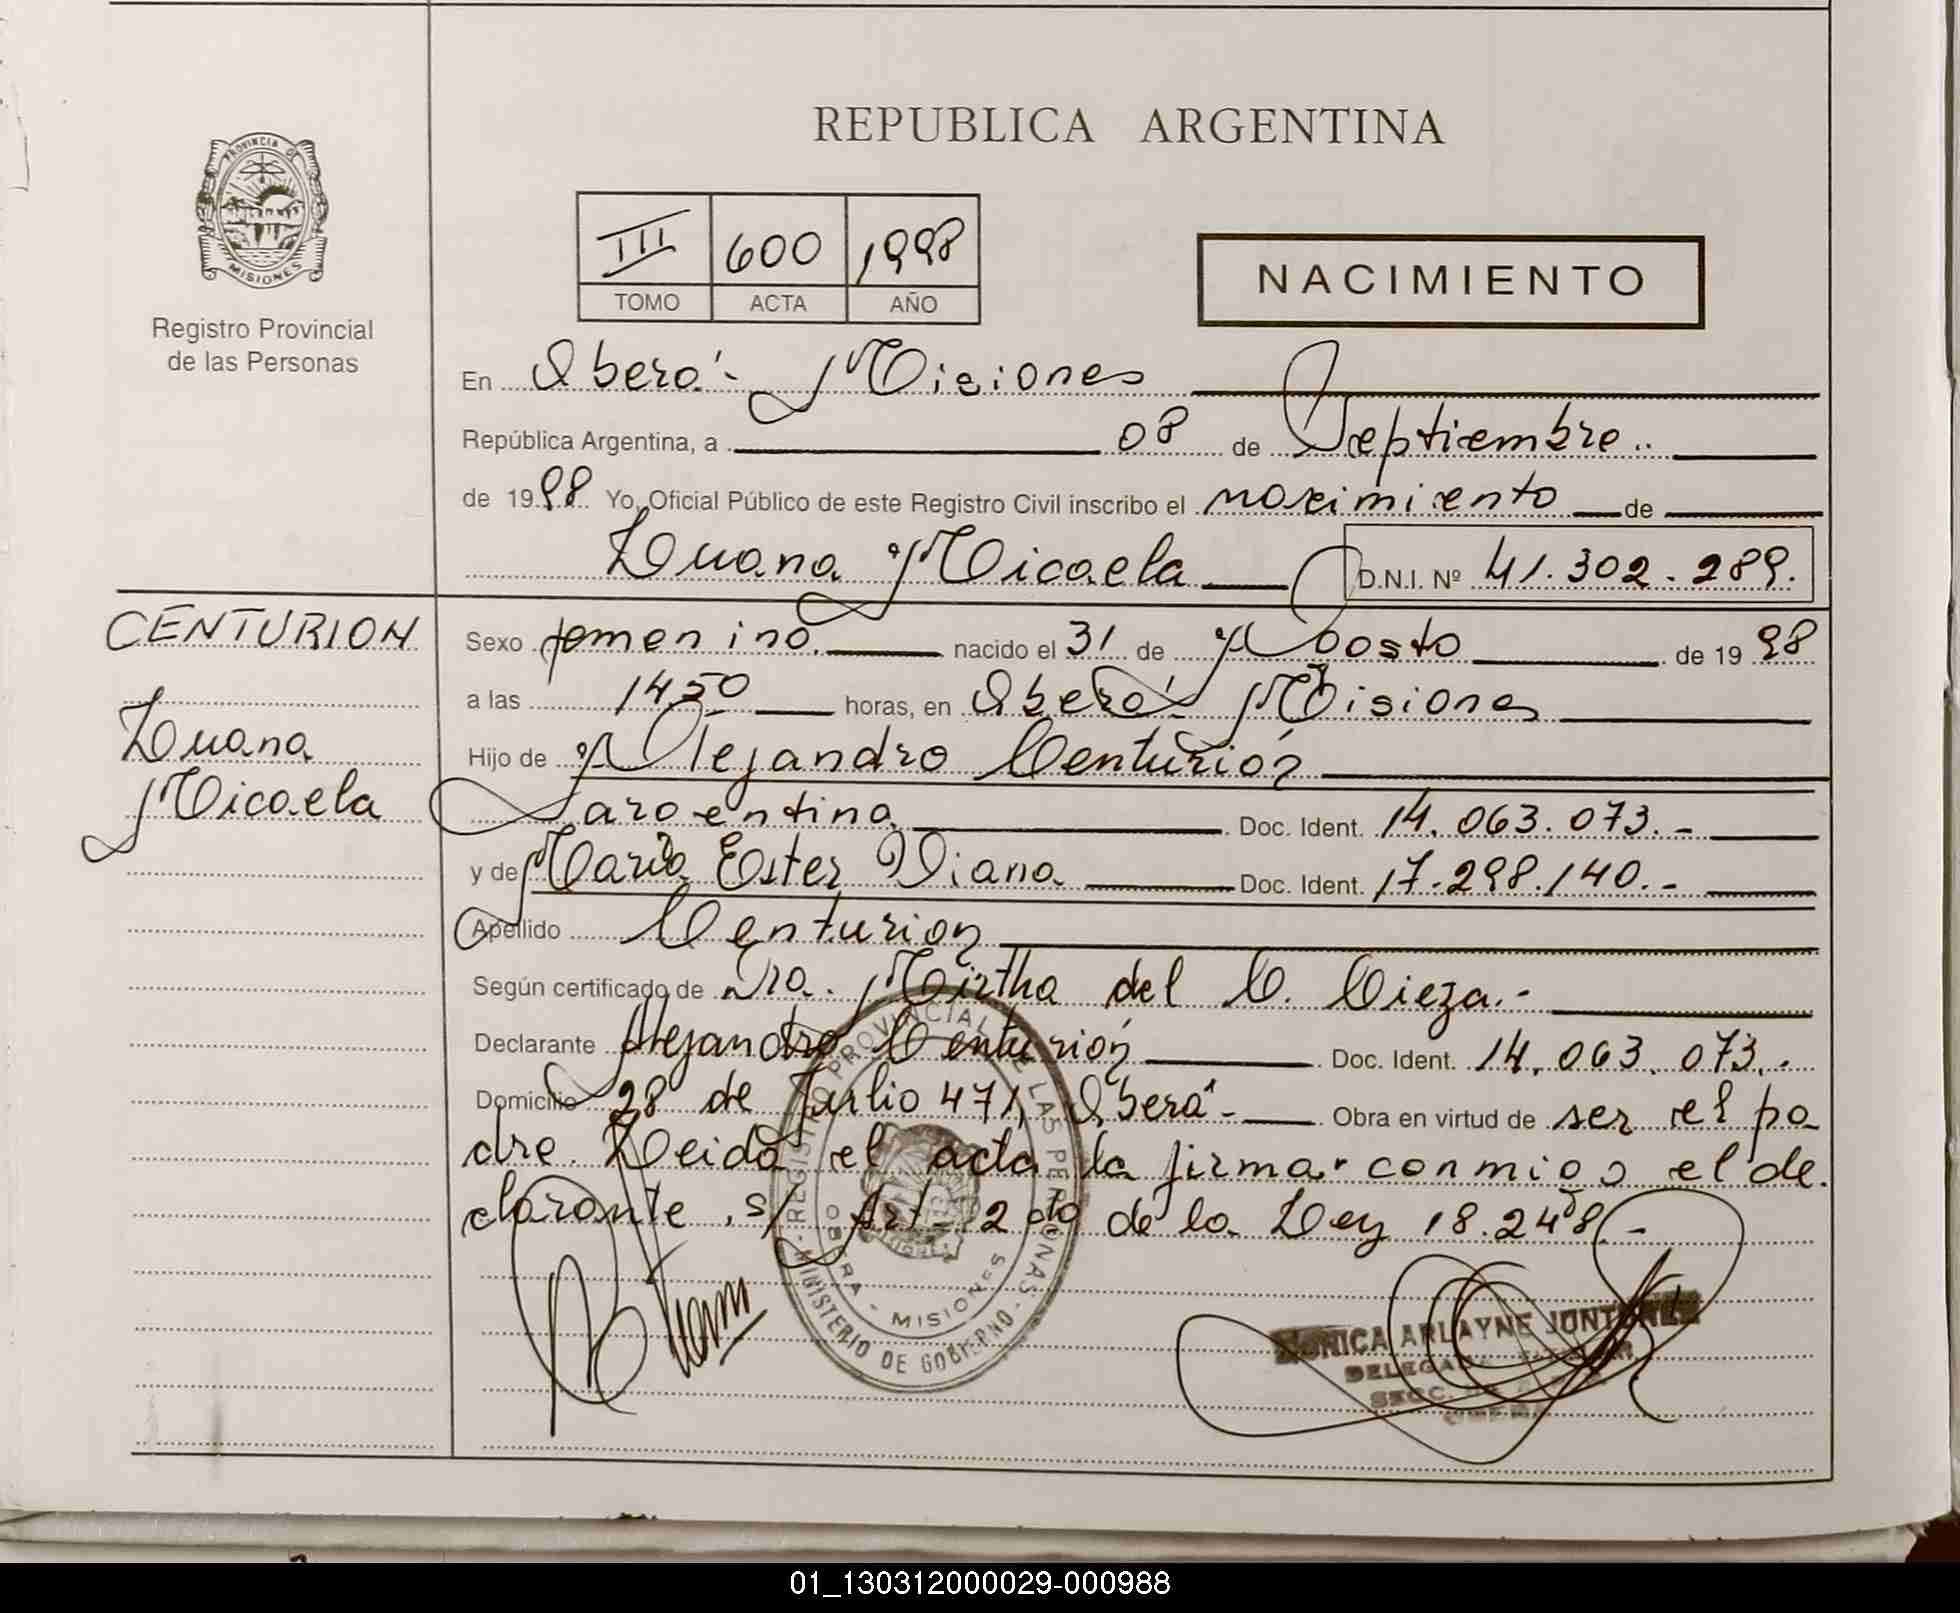 REPUBLICA ARGENTINA
PROVINCIA DE
MISIONES
Registro Provincial
de las Personas
III 600 1998
TOMO ACTA AÑO
NACIMIENTO
En Oberá - Misiones
República Argentina, a 08 de Septiembre..
de 1998. Yo, Oficial Público de este Registro Civil inscribo el nacimiento de
Luana Micaela D.N.I. Nº 41.302.289.
CENTURION
Luana
Micaela
Sexo femenino. nacido el 31 de Agosto de 1998
a las 14,50 horas, en Oberá - Misiones
Hijo de Alejandro Centurión
argentino. Doc. Ident. 14.063.073.-
y de María Ester Viana Doc. Ident. 17.298.140.-
Apellido Centurión
Según certificado de Dra. Mirtha del C. Cieza.-
Declarante Alejandro Centurión Doc. Ident. 14.063.073.-
Domicilio 28 de Julio 471, Oberá - Obra en virtud de ser el pa
dre. Leida el acta la firma conmigo el de
clarante, s/ Art. 2do de la Ley 18.248.-
REGISTRO PROVINCIAL DE LAS PERSONAS
MINISTERIO DE GOBIERNO
OBERA - MISIONES
MONICA ARLAYNE
OBERA
01_130312000029-000988